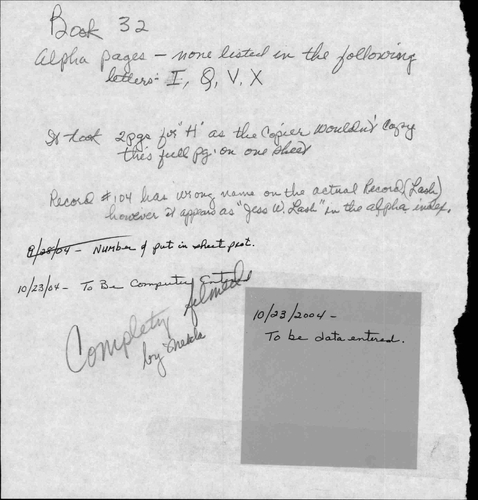 Book 32
Alpha pages – none listed in the following
letters: I, Q, V, X
It took 2pgs for "H" as the Copier wouldn't copy
this full pg. on one sheet
Record #104 has wrong name on the actual Record (Lash)
however it appears as "Jess W. Lash" in the alpha index.
8/28/04 – Number of put in sheet prot.
10/23/04 – To Be Computer Entered
Completely filmed
by
10/23/2004 –
To be data entered.